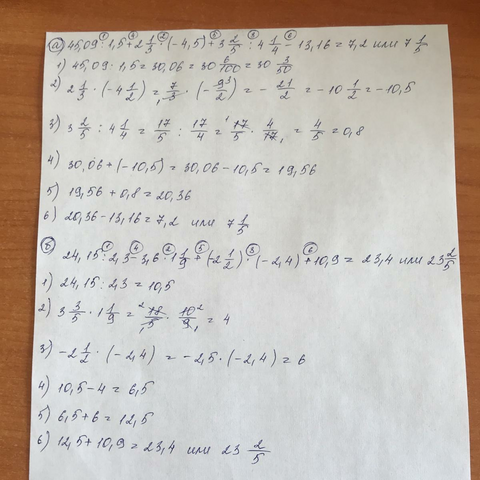 а) 45,09 : 1,5 + 2 1/3 · (-4,5) + 3 2/5 : 4 1/4 - 13,16 = 7,2 или 7 1/5
1) 45,09 : 1,5 = 30,06 = 30 6/100 = 30 3/50
2) 2 1/3 · (-4 1/2) = 7/3 · (-9/2) = -21/2 = -10 1/2 = -10,5
3) 3 2/5 : 4 1/4 = 17/5 : 17/4 = 17/5 · 4/17 = 4/5 = 0,8
4) 30,06 + (-10,5) = 30,06 - 10,5 = 19,56
5) 19,56 + 0,8 = 20,36
6) 20,36 - 13,16 = 7,2 или 7 1/5
24,15 : 2,3 - 3,6 · 1 1/9 + (-2 1/2) · (-2,4) + 10,9 = 23,4 или 23 2/5
1) 24,15 : 2,3 = 10,5
2) 3 3/5 · 1 1/9 = 18/5 · 10/9 = 4
3) -2 1/2 · (-2,4) = -2,5 · (-2,4) = 6
4) 10,5 - 4 = 6,5
5) 6,5 + 6 = 12,5
6) 12,5 + 10,9 = 23,4 или 23 2/5